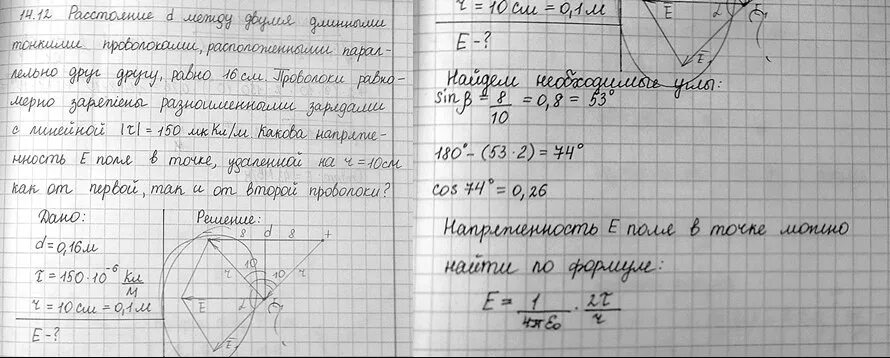 14.12 Расстояние d между двумя длинными
тонкими проволоками, расположенными парал-
лельно друг другу, равно 16 см. Проволоки равно-
мерно заряжены разноименными зарядами
с линейной |τ| = 150 мкКл/м. Какова напряже-
нность E поля в точке, удаленной на r = 10 см
как от первой, так и от второй проволоки?
Дано:
d = 0,16 м
τ = 150·10⁻⁶ Кл/м
r = 10 см = 0,1 м
E - ?
Решение:
8 d 8 +
r 10 10 r
E 2
E
r = 10 см = 0,1 м
E - ?
E 2
E
Найдем необходимые углы:
sin β = 8/10 = 0,8 = 53°
180° - (53·2) = 74°
cos 74° = 0,26
Напряженность E поля в точке можно
найти по формуле:
E = 1/4πε₀ · 2τ/r